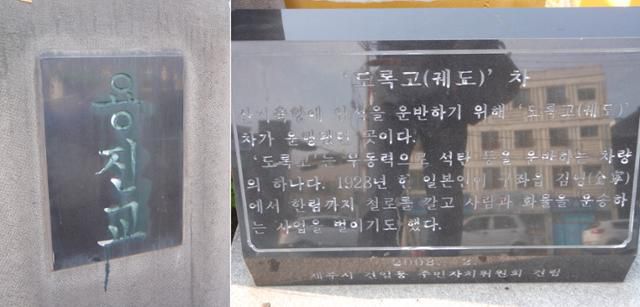 용진교
‘도록고(궤도)’ 차
운반하기 위해 ‘도록고(궤도)’
차가 운행됐던 곳이다.
‘도록고’는 무동력으로 석탄 등을 운반하는 차량
의 하나다. 1928년 한 일본인이 구좌읍 김녕(金寧)
에서 한림까지 철로를 깔고 사람과 화물을 운송하
는 사업을 벌이기도 했다.
2008.
제주시 건입동 주민자치위원회 건립